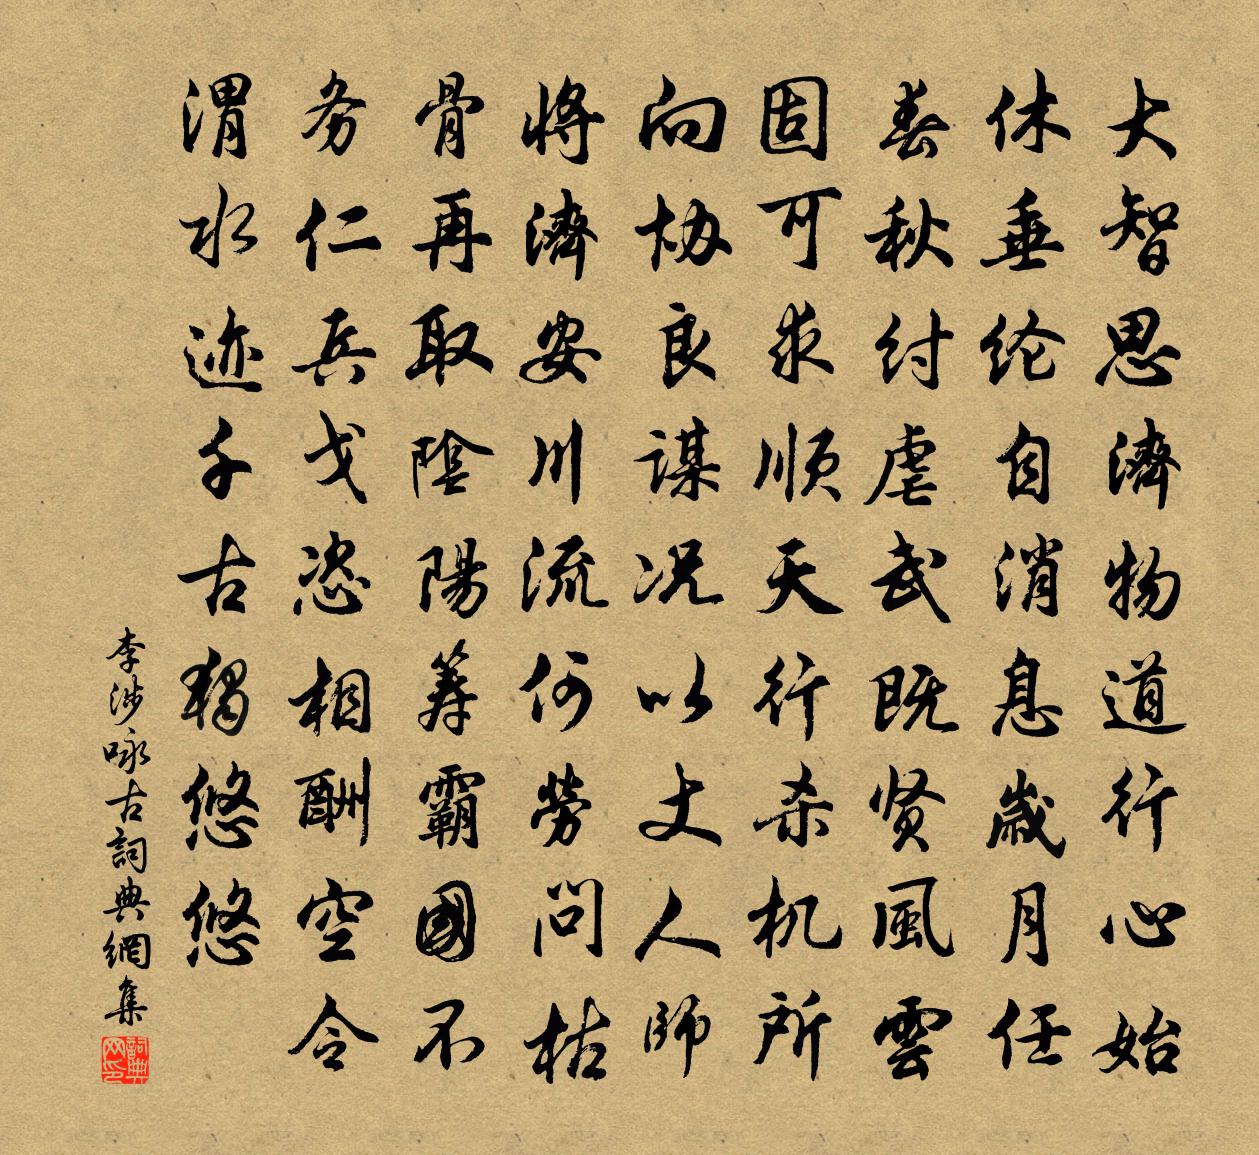 大智思濟物道行心始
休垂纶自消息歲月任
春秋纣虐武既贤風雲
固可求顺天行杀机所
向协良謀况以丈人師
將濟安川流何勞問枯
骨再取陰陽筹霸國不
务仁兵戈恣相酬空令
渭水迹千古獨悠悠
李涉咏古詞典網集
詞典网印